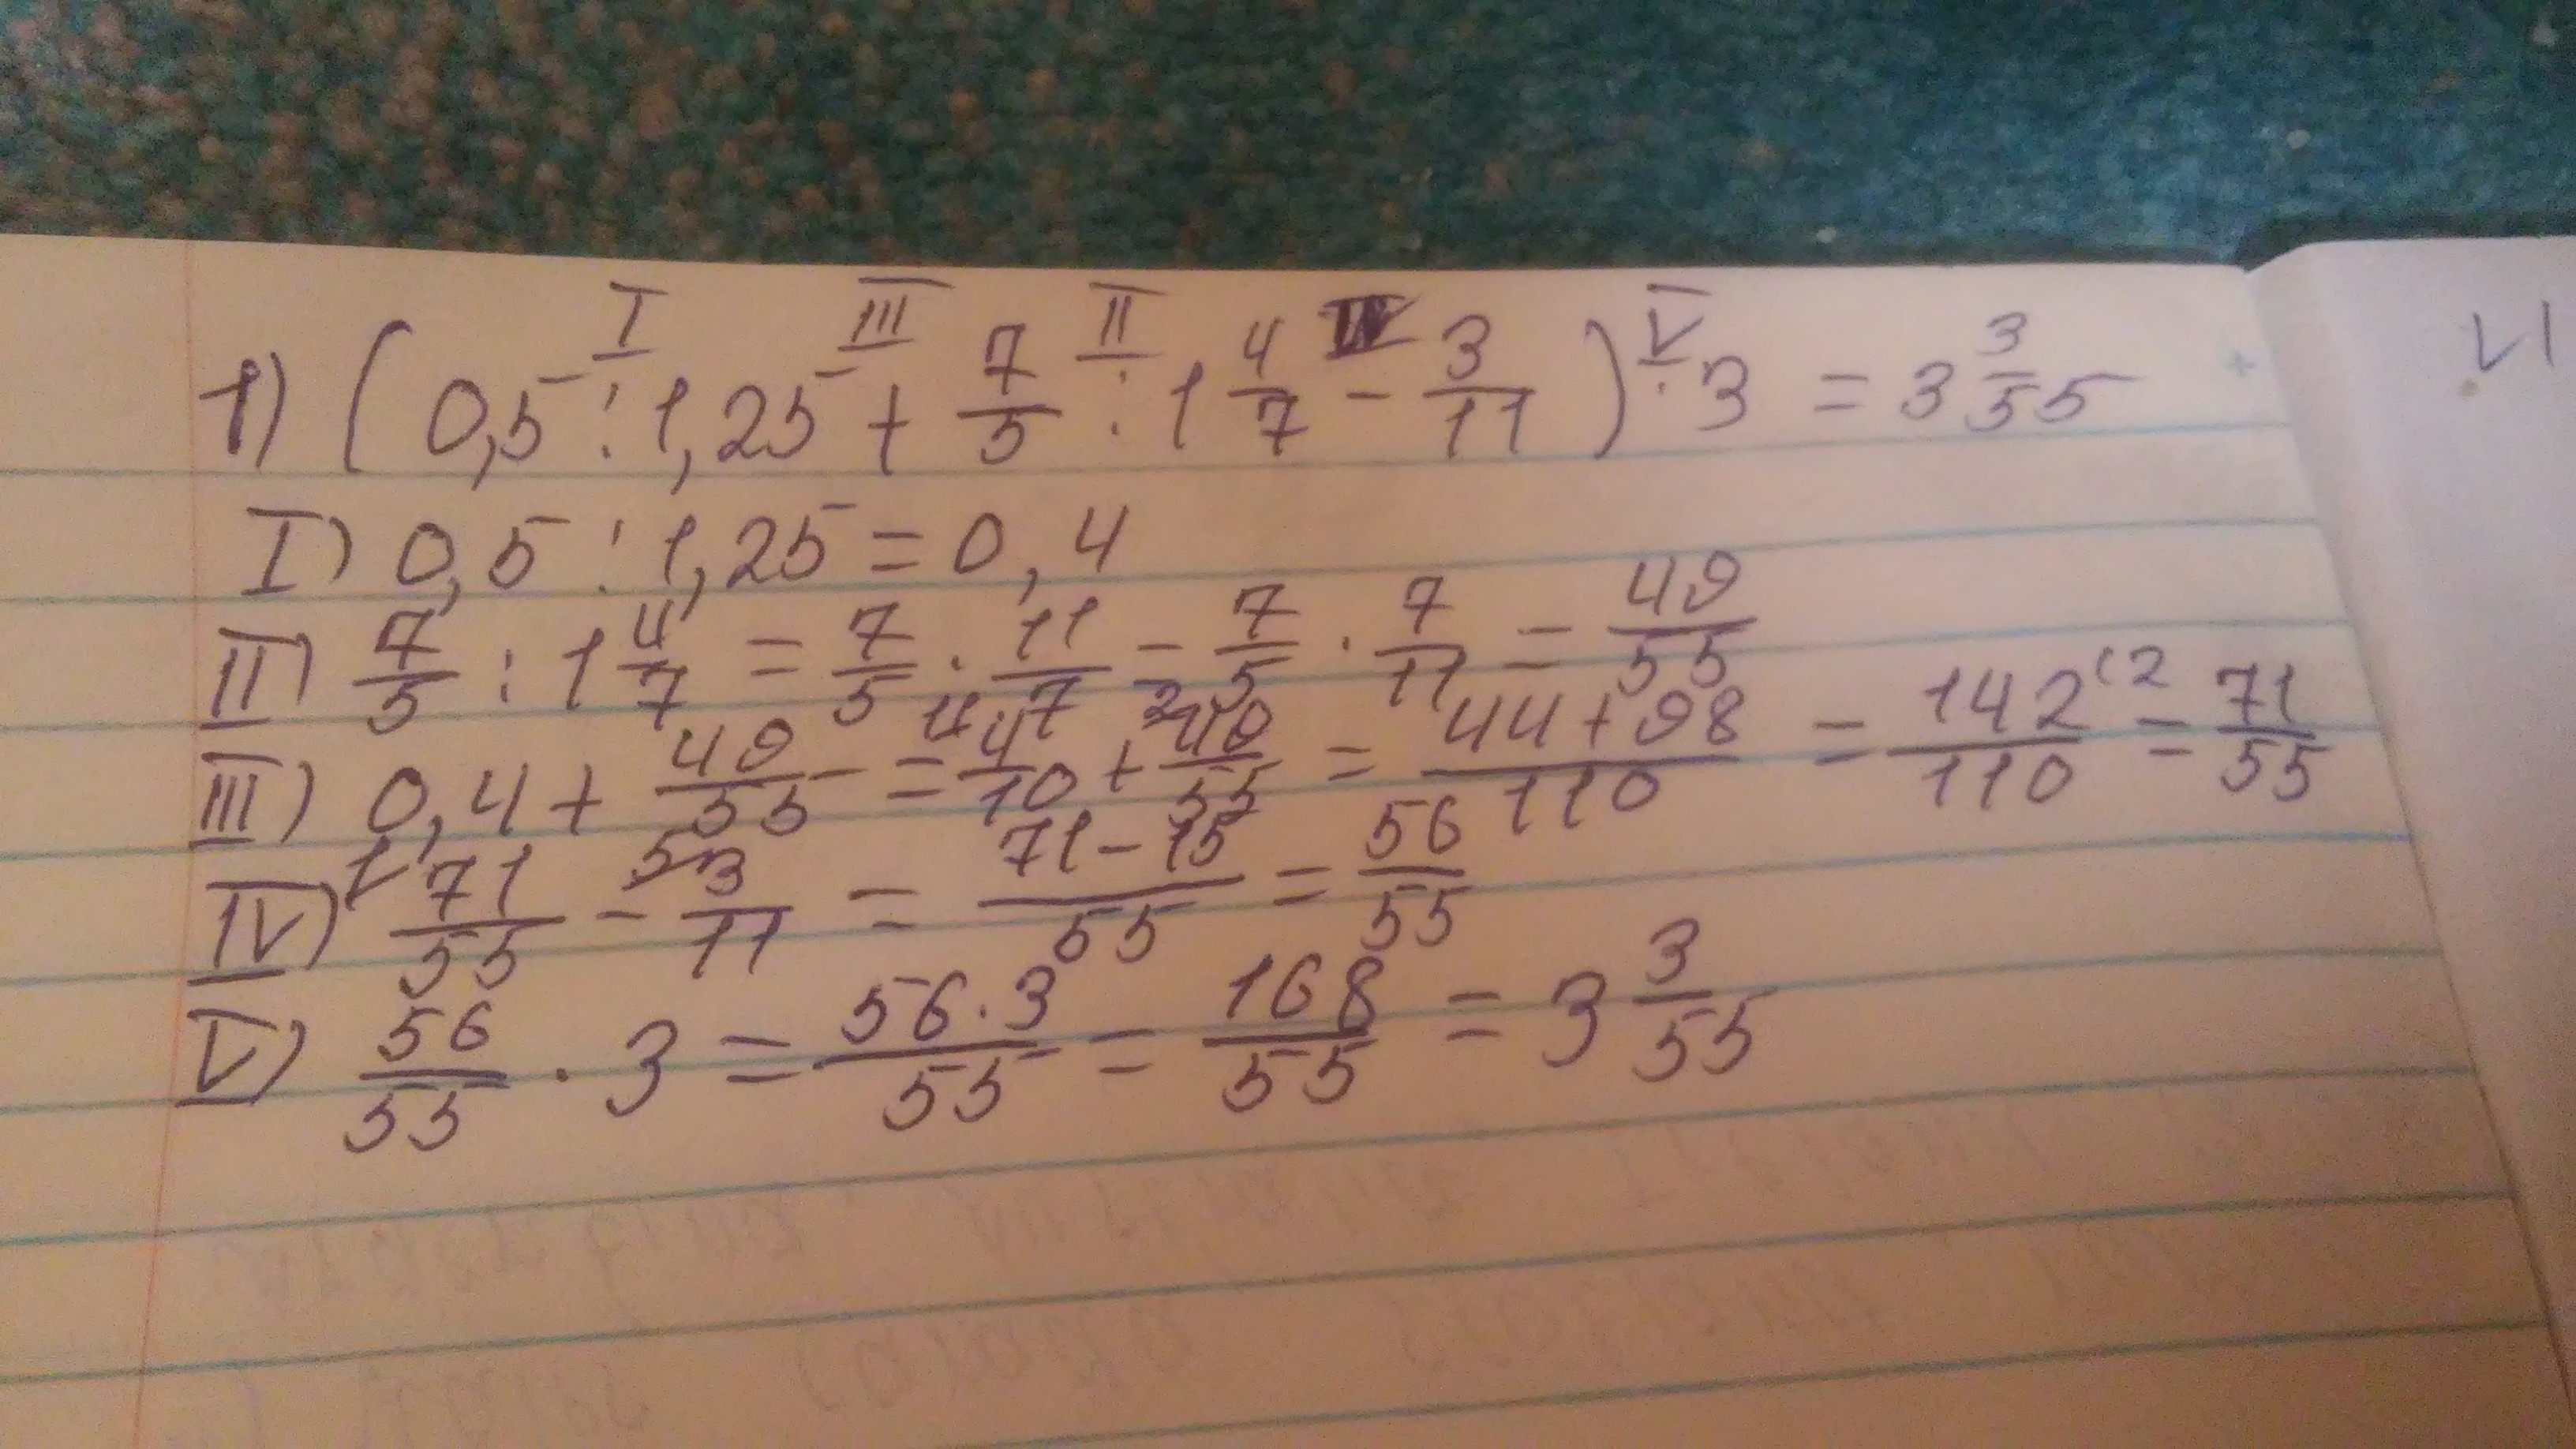 I III II IV V
1) (0,5 : 1,25 + 7/5 : 1 4/7 - 3/11) · 3 = 3 3/55
I) 0,5 : 1,25 = 0,4
II) 7/5 : 1 4/7 = 7/5 · 11/7 = 7/5 · 7/11 = 49/55
III) 0,4 + 49/55 = 11 4/10 + 2 49/55 = 44+98/110 = 142/110 (2 = 71/55
IV) 1 71/55 - 5 3/11 = 71-15/55 = 56/55
V) 56/55 · 3 = 56·3/55 = 168/55 = 3 3/55